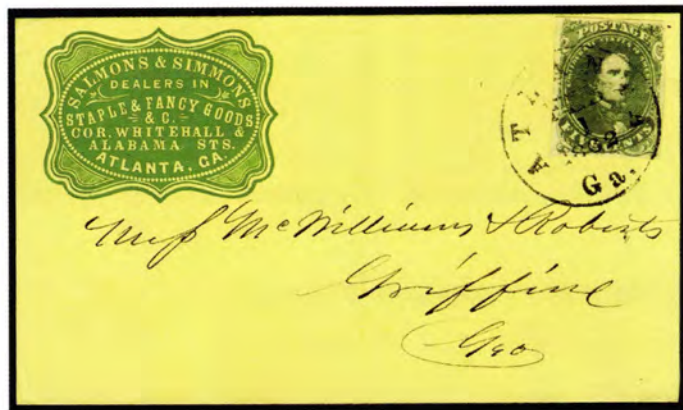 SALMONS & SIMMONS
DEALERS IN
STAPLE & FANCY GOODS
& C.
COR. WHITEHALL &
ALABAMA STS.
ATLANTA, GA.
POSTAGE
FIVE CENTS
1862
Ga.
McWilliams & Roberts
Griffine
Geo